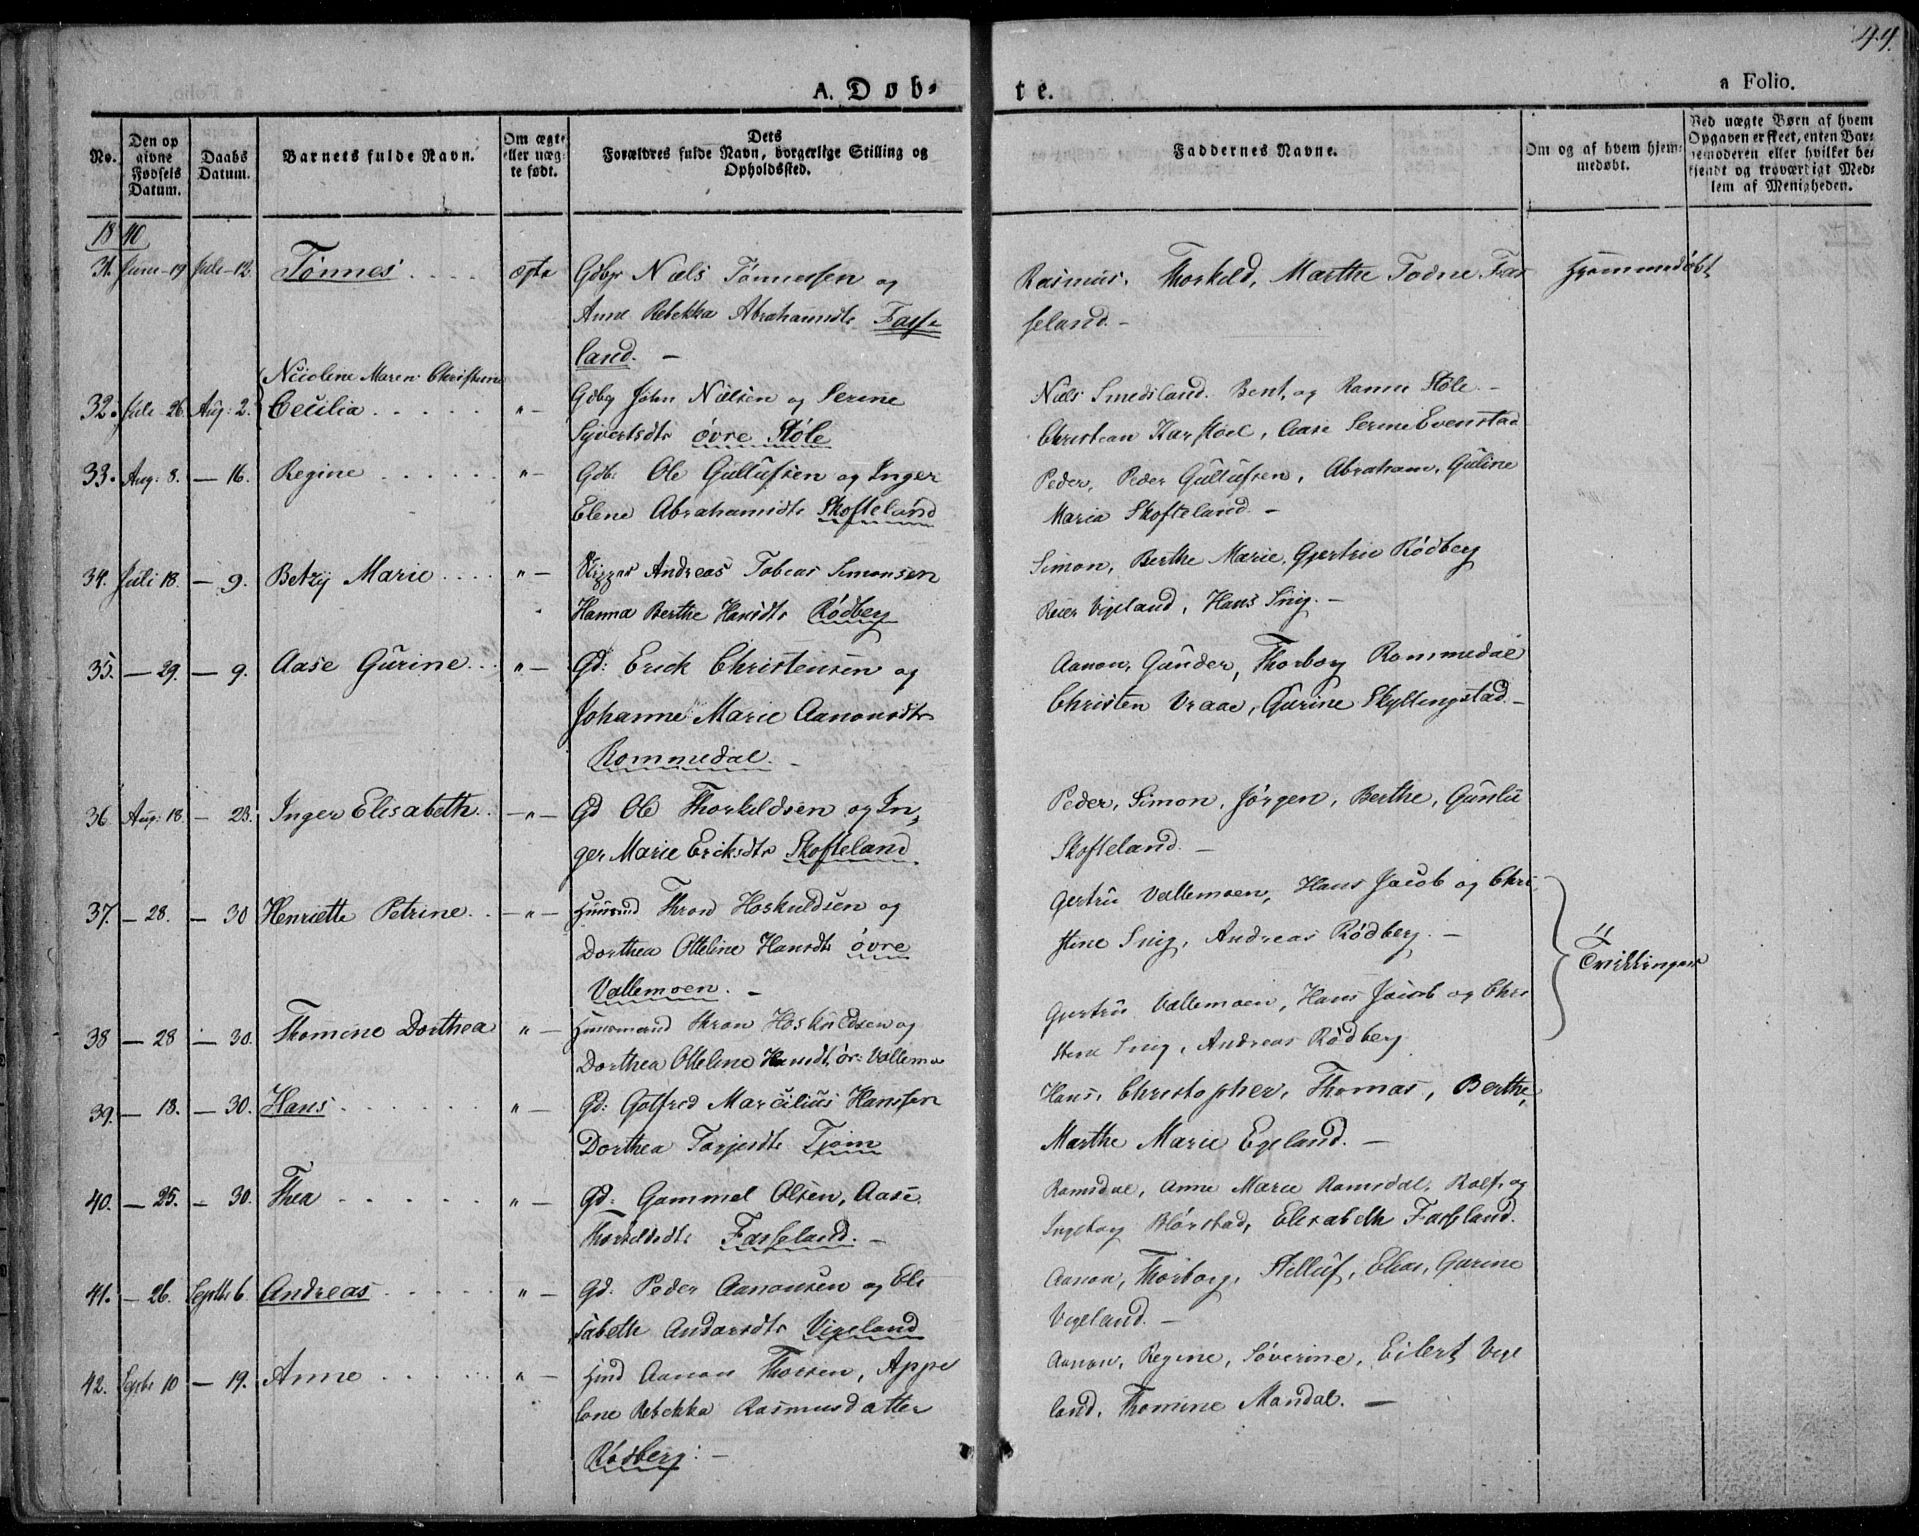 44.
A. Døb-
te.
a Folio.
No.
Den op
givne
Fødsels
Datum.
Daabs
Datum.
Barnets fulde Navn.
Om ægte
eller uæg-
te født.
Dets
Forældres fulde Navn, borgerlige Stilling og
Opholdssted.
Faddernes Navne.
Om og af hvem hjem-
medøbt.
Ved uægte Børn af hvem
Opgaven er skeet, enten Bar-
nemoderen eller hvilket be-
kjendt og troværdigt Med-
lem af Menigheden.
1840
31. Juni 19 Juli 12. Tønnes .... ægte Gdbr Niels Tønnessen og
Anne Rebekka Abrahamsdtr Fasse
land. —
Rasmus, Thorkild, Marthe Todne Fas
seland. —
Hjemmedøbt
Nicolene Maren Christiane
32. Juli 26 Aug: 2. Cecilia ..... "— Gdbr John Nielsen og Serine
Syvertsdtr øvre Støle
Niels Smedsland. Bent, og Ranne Støle. —
Christian Karstøel, Aase Serine Evenstad
33. Aug: 8. — 16. Regine ..... "— Gdb: Ole Gullufsen og Inger
Elene Abrahamsdtr Skofteland
Peder, Peder Gullufsen, Abraham, Guline
Maria Skofteland. —
34. Juli 18. — 9. Betzy Marie .... "— Skipper Andreas Tobias Simonsen
Hanna Berthe Hansdtr Rødberg
Simon, Berthe Marie, Gjertrue Rødberg
Reier Vigeland, Hans Snig. —
35. — 29. — 9. Aase Gurine ... "— Gd: Erick Christensen og
Johanne Marie Aanonsdtr
Rommedal. —
Aanon, Gunder, Thorborg Rommedal
Christen Vraae, Gurine Skyllingstad. —
36. Aug: 18. — 23. Inger Elisabeth .. —"— Gd Ole Thorkildsen og In,
ger Marie Ericksdtr Skofteland.
Peder, Simon, Jørgen, Berthe, Gunlu
Skofteland. —
37. — 28. — 30 Henriette Petrine .. —"— Huusmd Thron Hoskuldsen og
Dorthea Otteline Hansdtr øvre
Vallemoen. —
Gjertru Vallemoen, Hans Jacob og Chri
stine Snig, Andreas Rødberg. —
Tvillinger
38 — 28 — 30. Thomine Dorthea "— Huusmand Thron Hoskuldsen og
Dorthea Otteline Hansdt. ør: Vallemo
Gjertru Vallemoen, Hans Jacob og Chri
stine Snig, Andreas Rødberg
39. — 18. — 30. Hans ...... "— Gd: Gotfred Marcilius Hanssen
Dorthea Torjersdtr Tjom
Hans, Christopher, Thomas, Berthe,
Marthe Marie Egeland. —
40. — 25. — 30. Thea ..... "— Gd: Gammel Olsen, Aase
Thorkildsdtr Fasseland. —
Ramsdal, Anne Marie Ramsdal, Rolf, og
Ingeborg Blørstad, Elisabeth Fasseland.
41. — 26. Septbr 6. Andreas ..... "— Gd: Peder Aanonsen og Eli
sabeth Andersdtr Vigeland
Aanon, Thorborg, Stelluf, Elias, Gurine
Vigeland. —
42. Septbr 10 — 19. Anne ...... "— Hmd Aanon Thorsen, Appe
lone Rebekka Rasmusdatter
Rødberg: —
Aanon, Regine, Søverine, Eilert Vige
land, Thomine Mandal. —